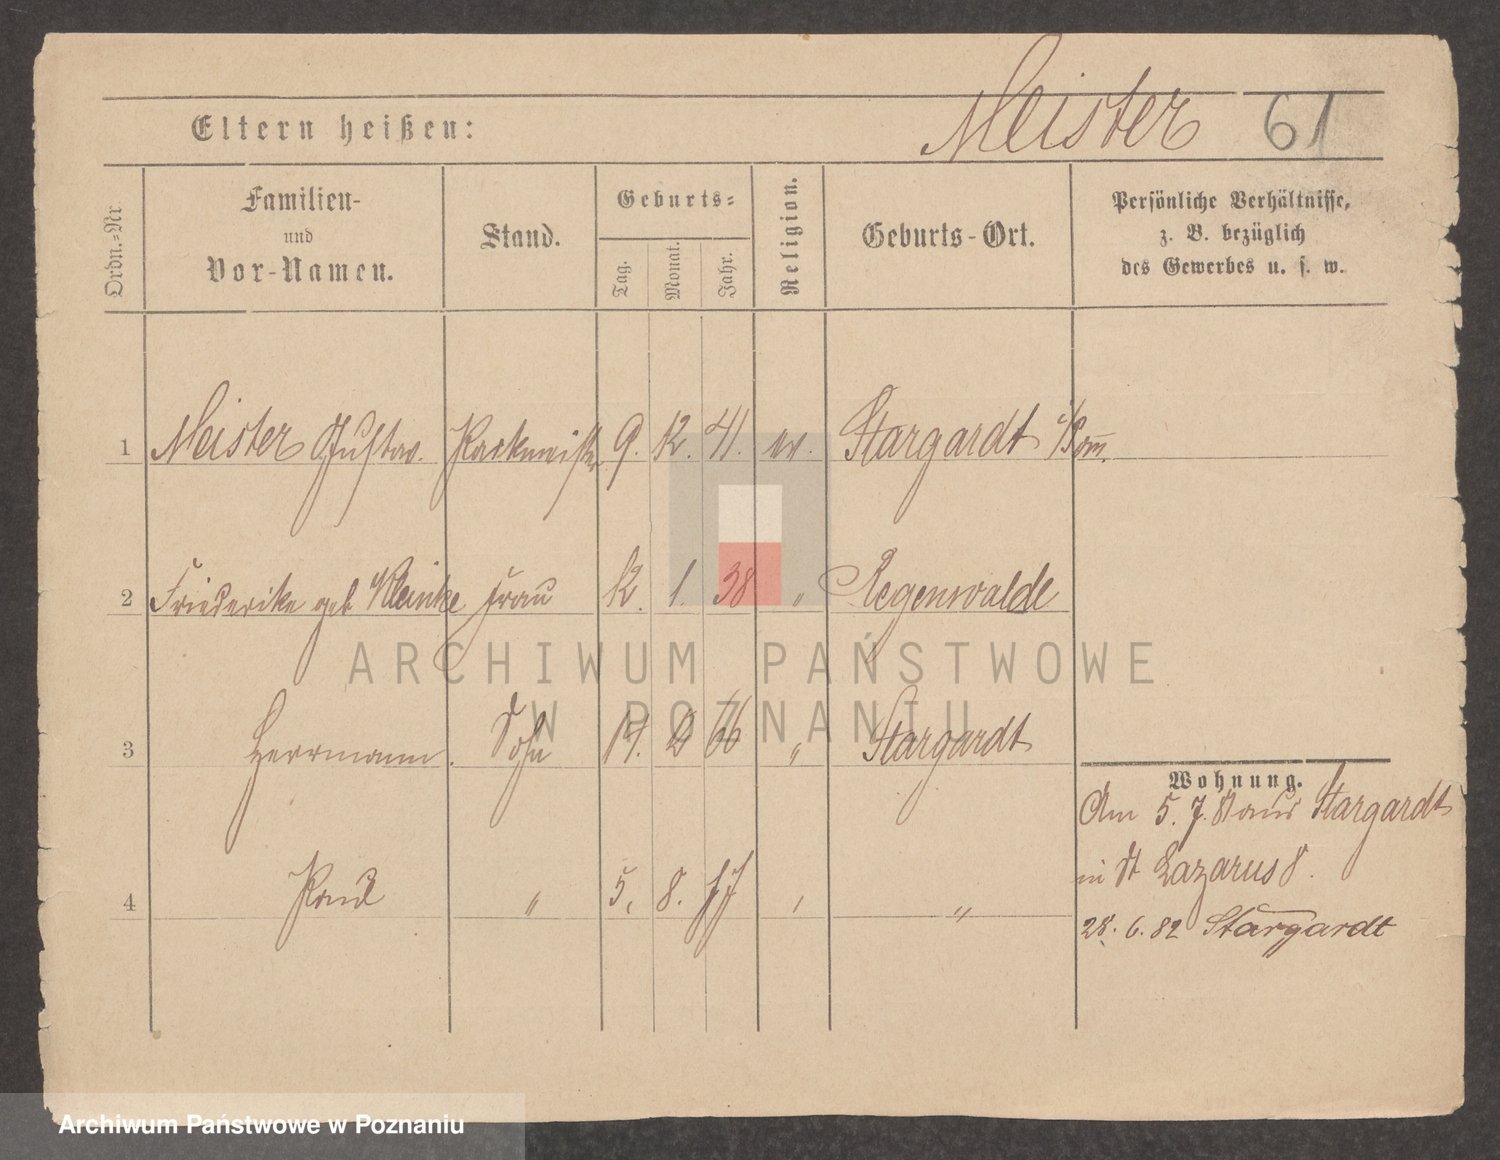 Meister 61
Eltern heißen:
Ordn.=Nr
Familien-
und
Vor-Namen.
Stand.
Geburts=
Tag.
Monat.
Jahr.
Religion.
Geburts-Ort.
Persönliche Verhältnisse,
z. B. bezüglich
des Gewerbes u. s. w.
1 Meister Gustav. Packmeister 9. 12. 41. ev. Stargardt i/Pom.
2 Friederike geb Kleinke Frau 12. 1. 38 " Regenwalde
3 Herrmann. Sohn 14. 66 " Stargardt
4 Paul " 5. 8. 77 " "
Wohnung.
Am 5. 7. 81 aus Stargardt
in St Lazarus 8.
28. 6. 82 Stargardt
ARCHIWUM PAŃSTWOWE
W POZNANIU
Archiwum Państwowe w Poznaniu